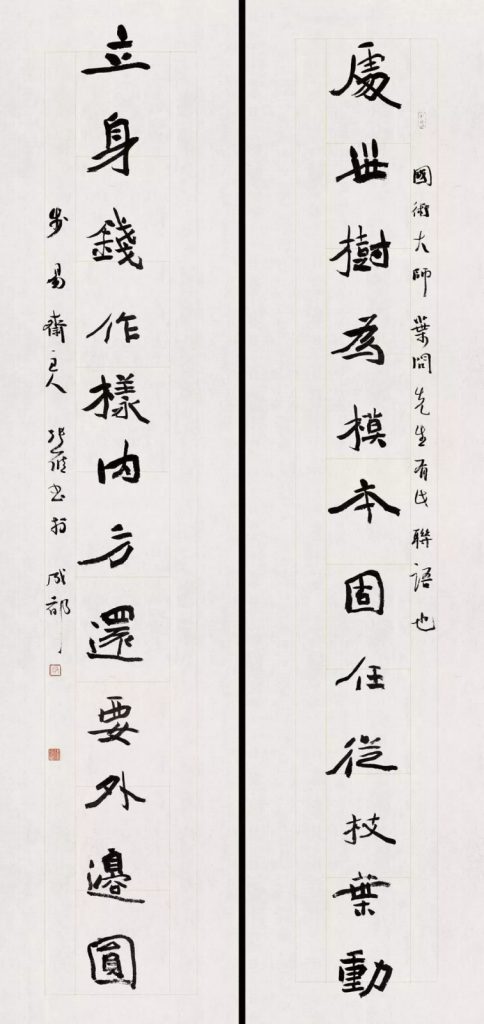 國術大師葉問先生有此聯語也
處世樹為模本固任從枝葉動
立身錢作樣內方還要外邊圓
步易齋主人書於成都